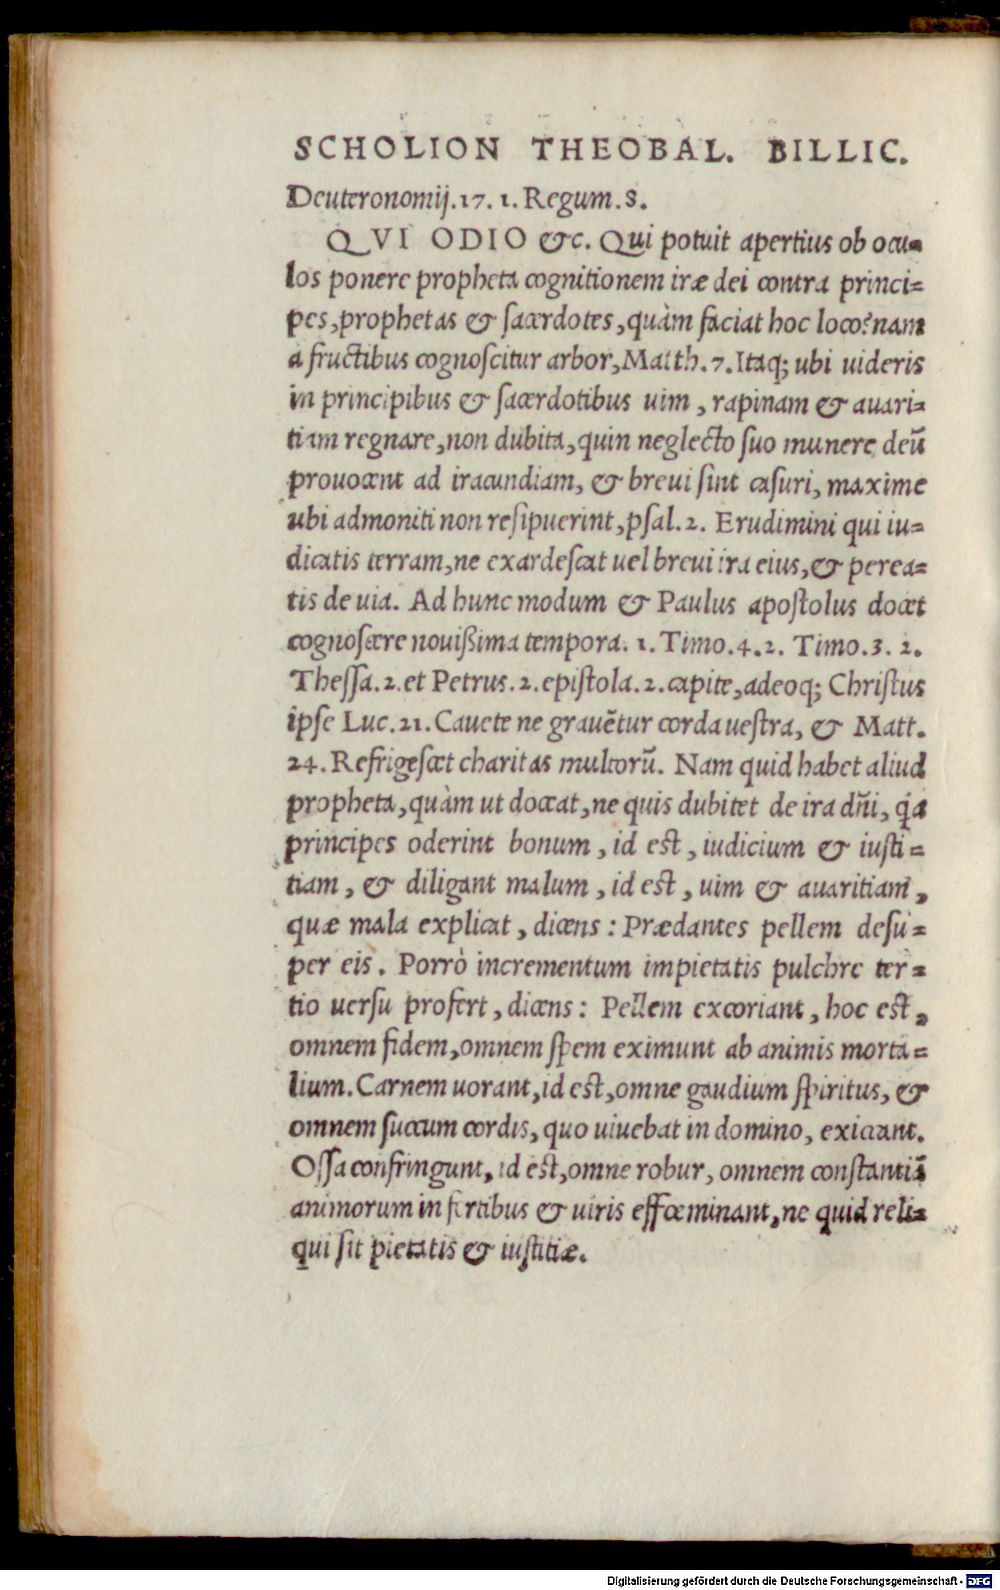 SCHOLION THEOBAL. BILLIC.
Deuteronomij. 17. 1. Regum. 8.
QVI ODIO &c. Qui potuit apertius ob ocu-
los ponere propheta cognitionem iræ dei contra princi-
pes, prophetas & sacerdotes, quàm faciat hoc loco? nam
a fructibus cognoscitur arbor, Matth. 7. Itaq; ubi uideris
in principibus & sacerdotibus uim, rapinam & auari-
tiam regnare, non dubita, quin neglecto suo munere deũ
prouocent ad iracundiam, & breui sint casuri, maxime
ubi admoniti non resipuerint, psal. 2. Erudimini qui iu-
dicatis terram, ne exardescat uel breui ira eius, & perea-
tis de uia. Ad hunc modum & Paulus apostolus docet
cognoscere nouißima tempora. 1. Timo. 4. 2. Timo. 3. 2.
Thessa. 2. et Petrus. 2. epistola. 2. capite, adeoq; Christus
ipse Luc. 21. Cauete ne grauẽtur corda uestra, & Matt.
24. Refrigescet charitas multorũ. Nam quid habet aliud
propheta, quàm ut doceat, ne quis dubitet de ira dñi, q̃a
principes oderint bonum, id est, iudicium & iusti-
tiam, & diligant malum, id est, uim & auaritiam,
quæ mala explicat, dicens: Prædantes pellem desu-
per eis. Porrò incrementum impietatis pulchre ter-
tio uersu profert, dicens: Pellem excoriant, hoc est,
omnem fidem, omnem spem eximunt ab animis morta-
lium. Carnem uorant, id est, omne gaudium spiritus, &
omnem succum cordis, quo uiuebat in domino, exiccant.
Ossa confringunt, id est, omne robur, omnem constantiã
animorum in fortibus & uiris effœminant, ne quid reli-
qui sit pietatis & iustitiæ.
Digitalisierung gefördert durch die Deutsche Forschungsgemeinschaft - DFG